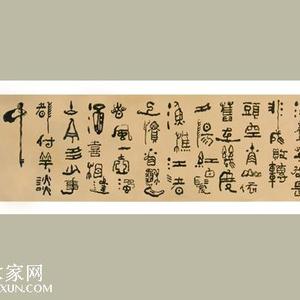 非成敗轉
頭空青山依
舊在幾度
夕陽紅白髮
漁樵江渚
上慣看秋月
春風一壺
濁酒喜相逢
古今多少事
都付笑談
中
家网
XUN.COM